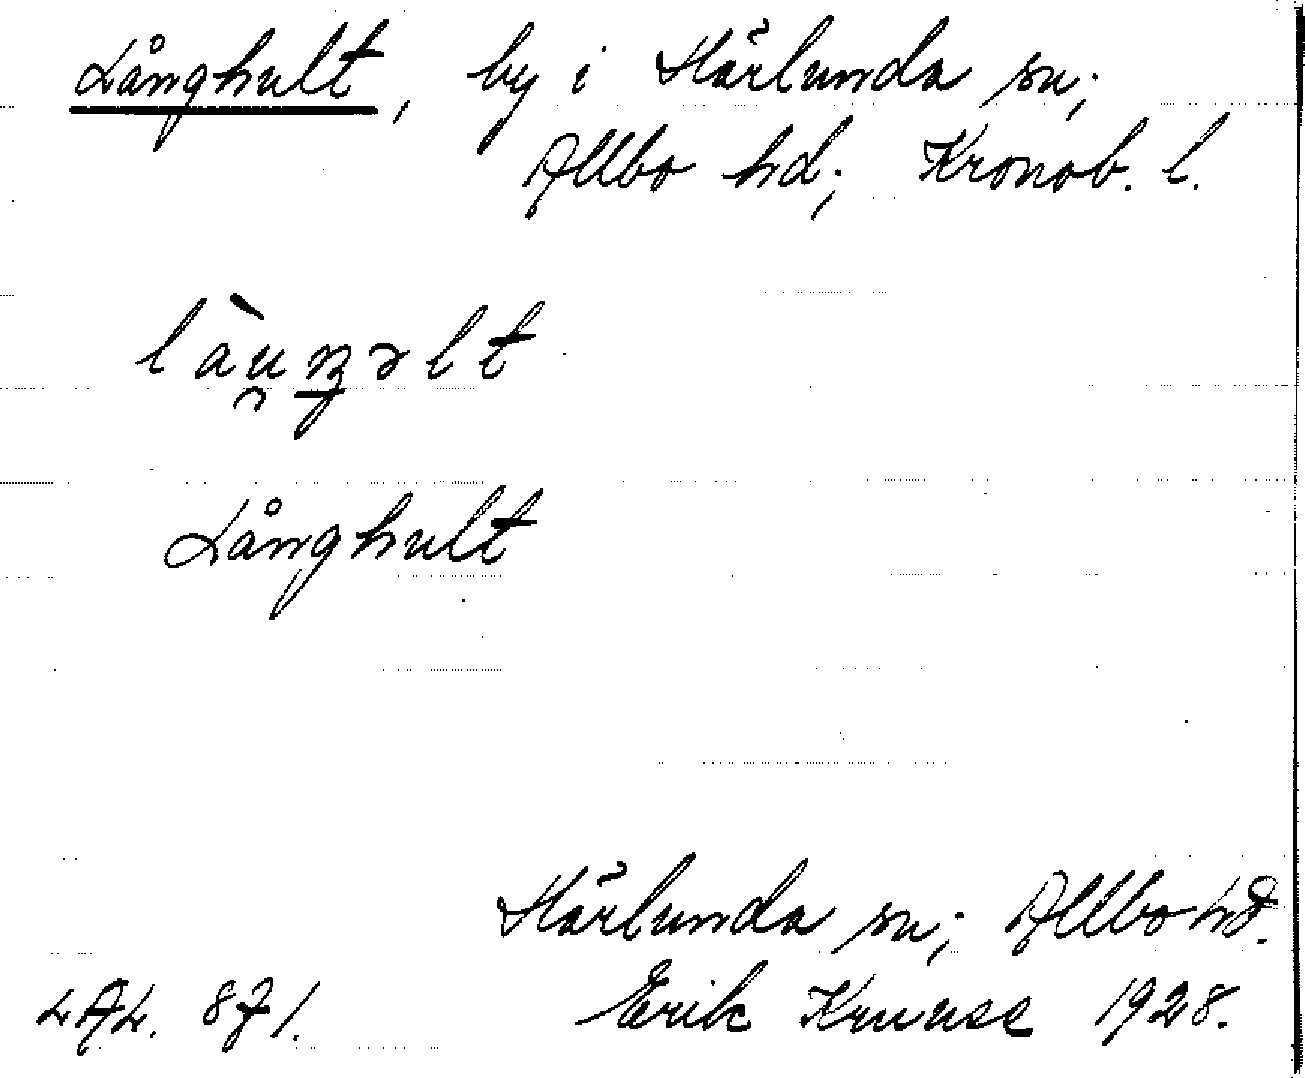 Långhult, by i Härlunda sn;
Allbo hd; Kronob. l.
Långhult
Härlunda sn; Allbo hd.
LAL. 871. Erik Kruuse 1928.